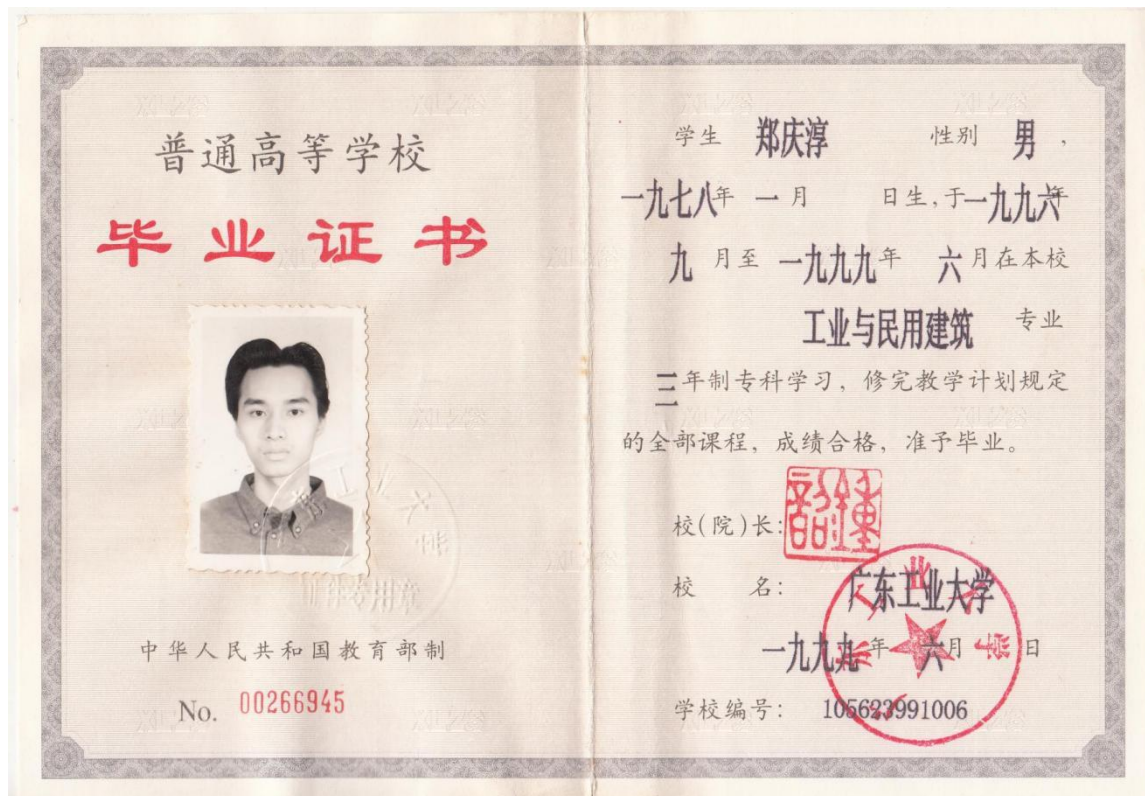 普通高等学校
毕业证书
中华人民共和国教育部制
No. 00266945
学生 郑庆淳 性别 男，
一九七八年 一月 日生，于一九九六年
九月至 一九九九年 六月在本校
工业与民用建筑 专业
三年制专科学习，修完教学计划规定
的全部课程，成绩合格，准予毕业。
校(院)长：
校 名： 广东工业大学
一九九九年 六月 日
学校编号： 105623991006